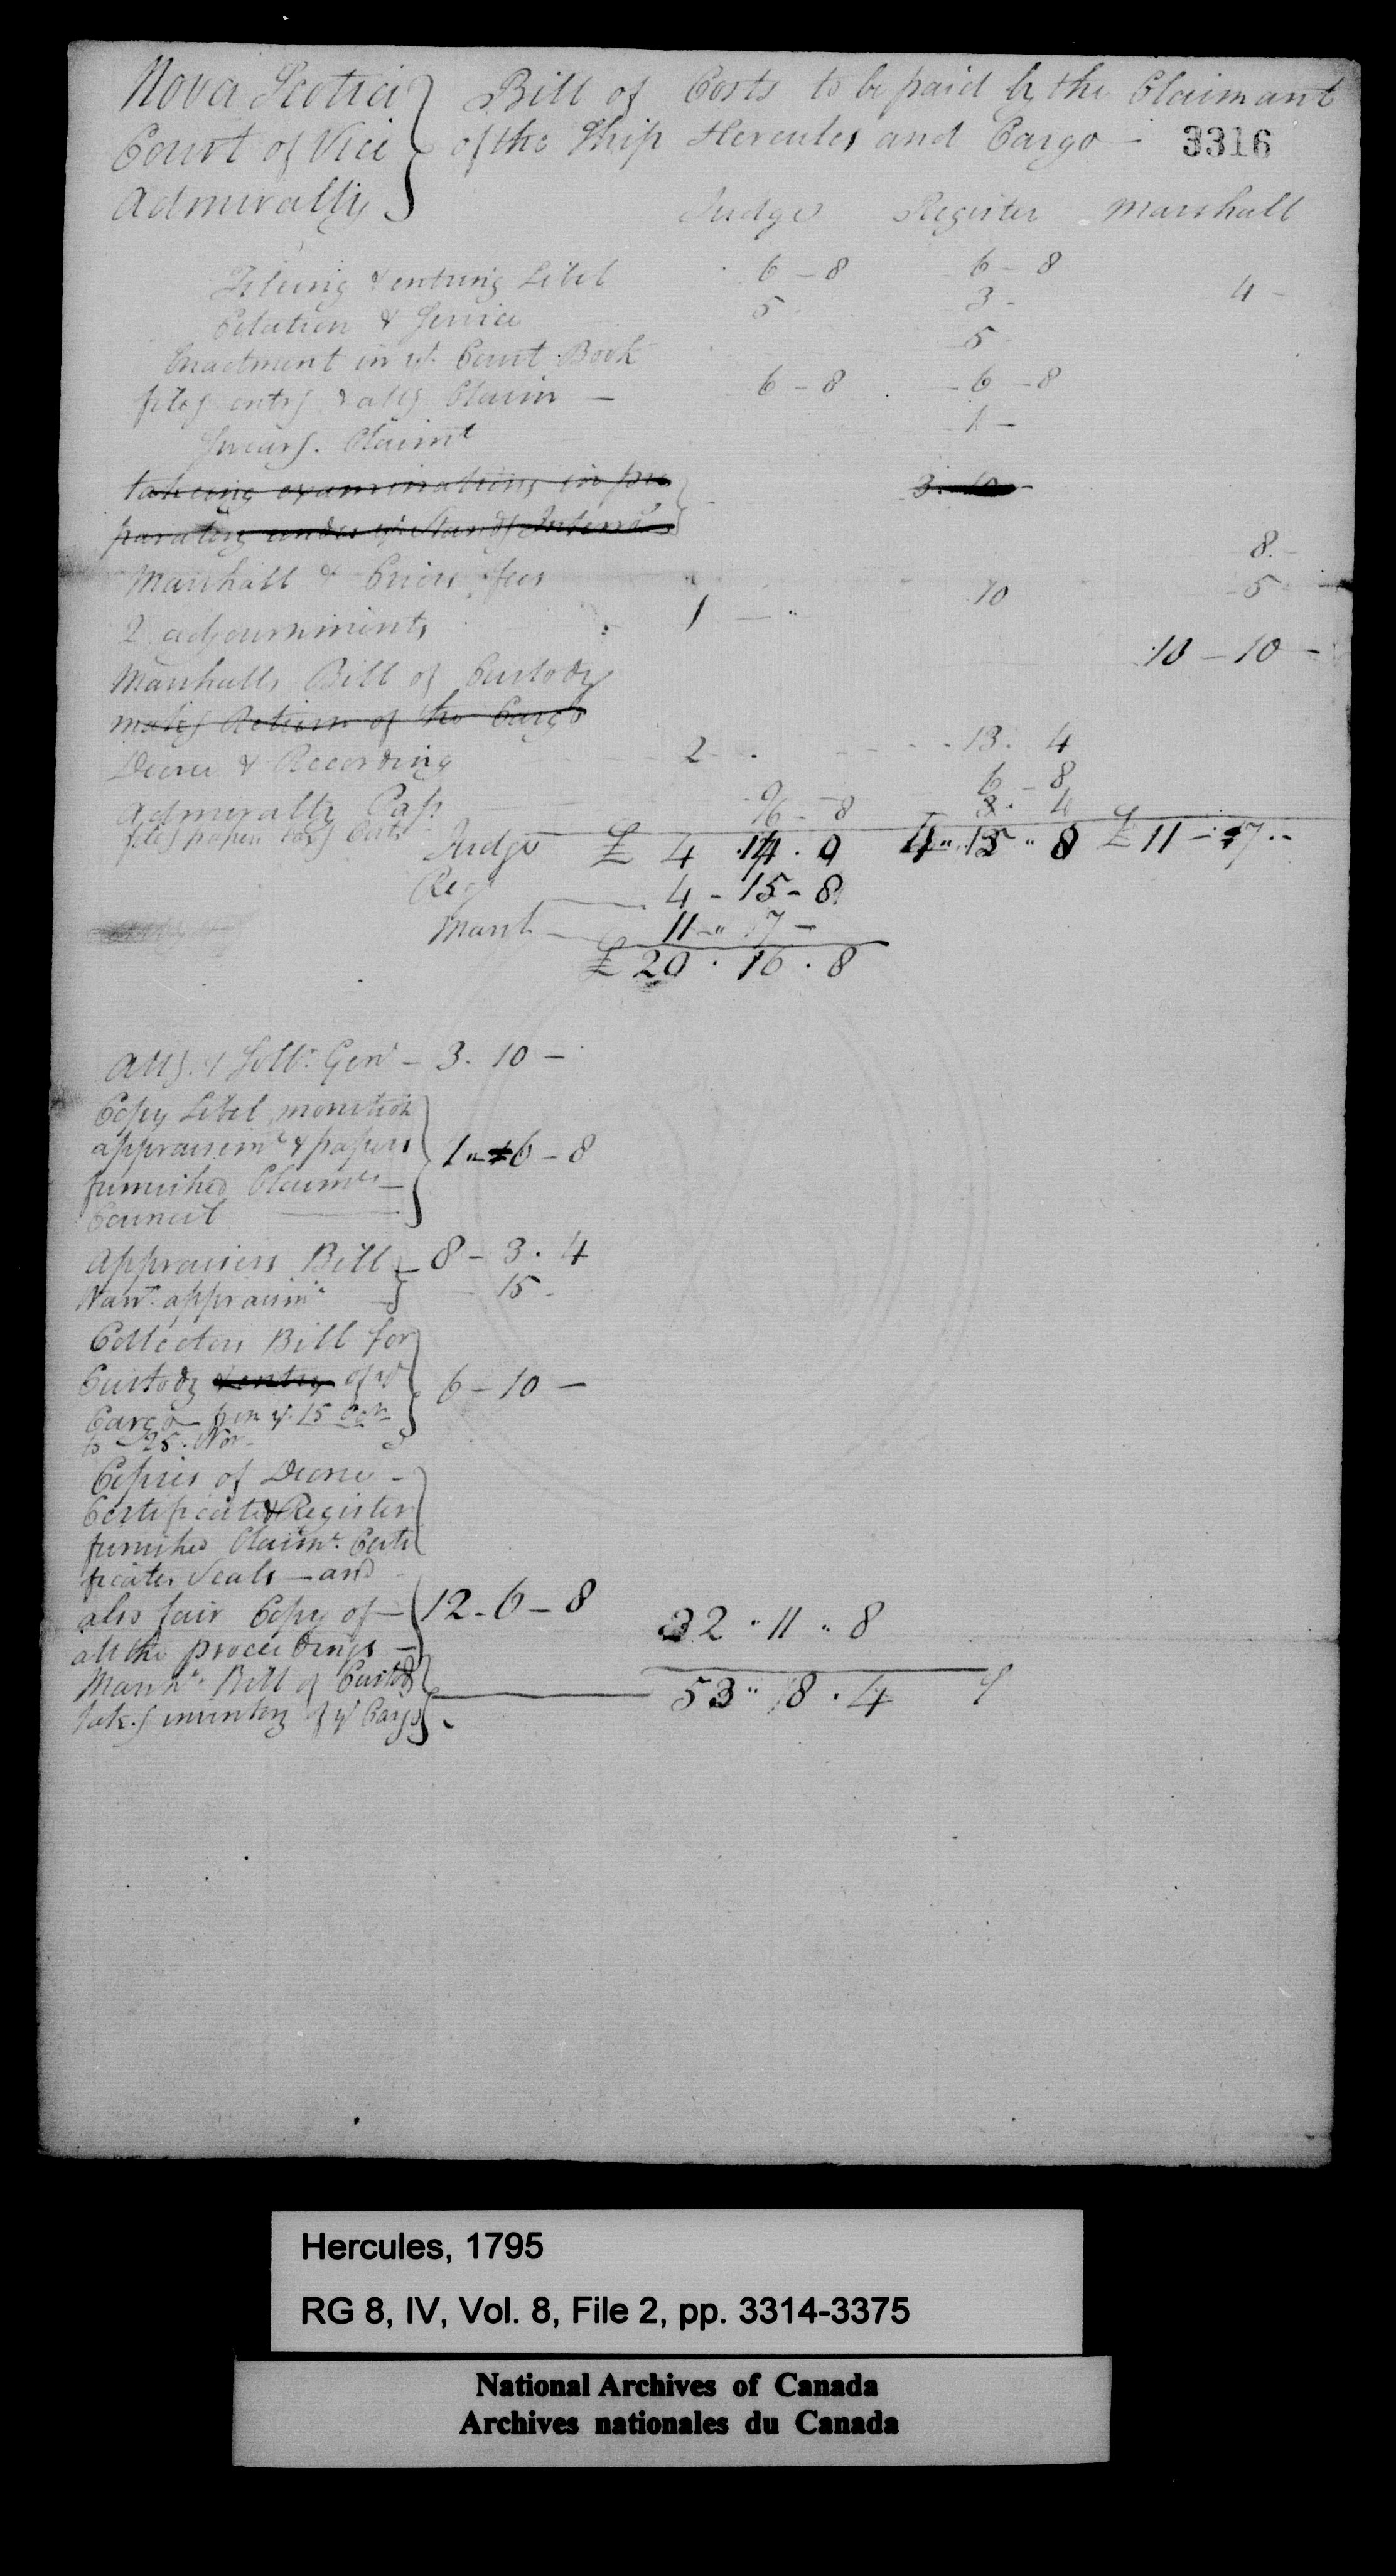 Nova Scotia } Bill of Costs to be paid by the Claimant
Court of Vice } of the Ship Hercules and Cargo — 3316
Admiralty }
Judge Register Marshall
Fileing & entring Libel 6 – 8 6 – 8
Citation & Service 5 3 - 4 -
Enactment in ye. Court Book 5
fileg entrg & allg Claim — 6 – 8 6 – 8
Swearg. Claimt 1 –
takeing examinations in pre
paratory under ye. Standg Interro 3. 10
Marshall & Criers fees 8. -
2 adjournments 1 — " 10 5 -
Marshalls Bill of Custody 10 – 10 –
makeg Return of the Cargo
Decree & Recording 2 - . 13. 4
Admiralty Pass 6 – 8
fileg papers taxg Costs 6 – 8 3. 4
Judge £ 4 . 14 . 0 4 " 15 " 8 £ 11 – 7 . -
Reg 4 – 15 – 8
Marsh — 11 – " 7 –
£ 20 . 16 . 8
Atty. & Sollr. Genl – 3. 10 –
Copy Libel monition
appraisemt & papers
furnished Claimts —
Council 1 " 6 – 8
Appraisers Bill 8 – 3 . 4
Wart. appraismt 15 -
Collectors Bill for
Custody & entry of ye
Cargo from ye. 15 Octr
to 25. Nov. 6 – 10 –
Copies of Decree –
Certificate & Register
furnished Claimt. Certi
ficates Seals — and
also fair Copy of — 12 – 6 – 8 32 " 11 " 8
all the proceedings —
Marshs. Bill of Custody 53 " 8 . 4
takeg inventory of ye Cargo
Hercules, 1795
RG 8, IV, Vol. 8, File 2, pp. 3314-3375
National Archives of Canada
Archives nationales du Canada